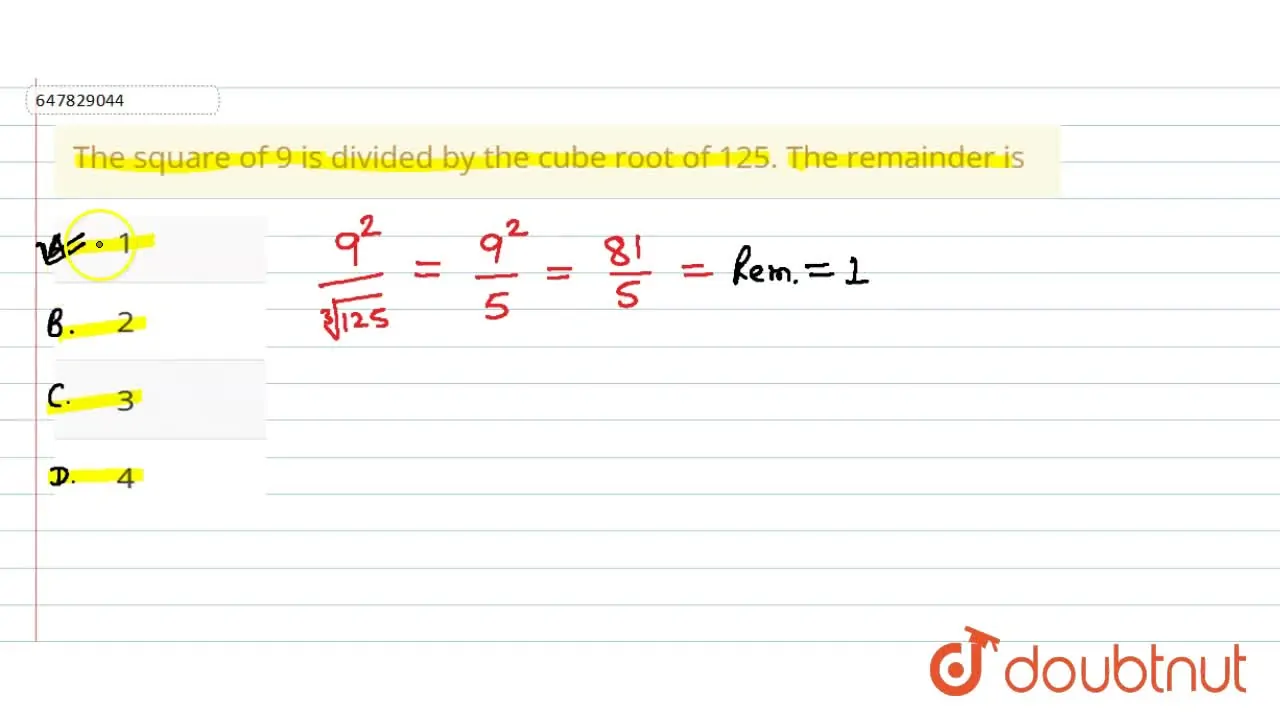 647829044
The square of 9 is divided by the cube root of 125. The remainder is
A. 1
B. 2
C. 3
D. 4
9² / ∛125 = 9² / 5 = 81 / 5 = Rem. = 1
doubtnut